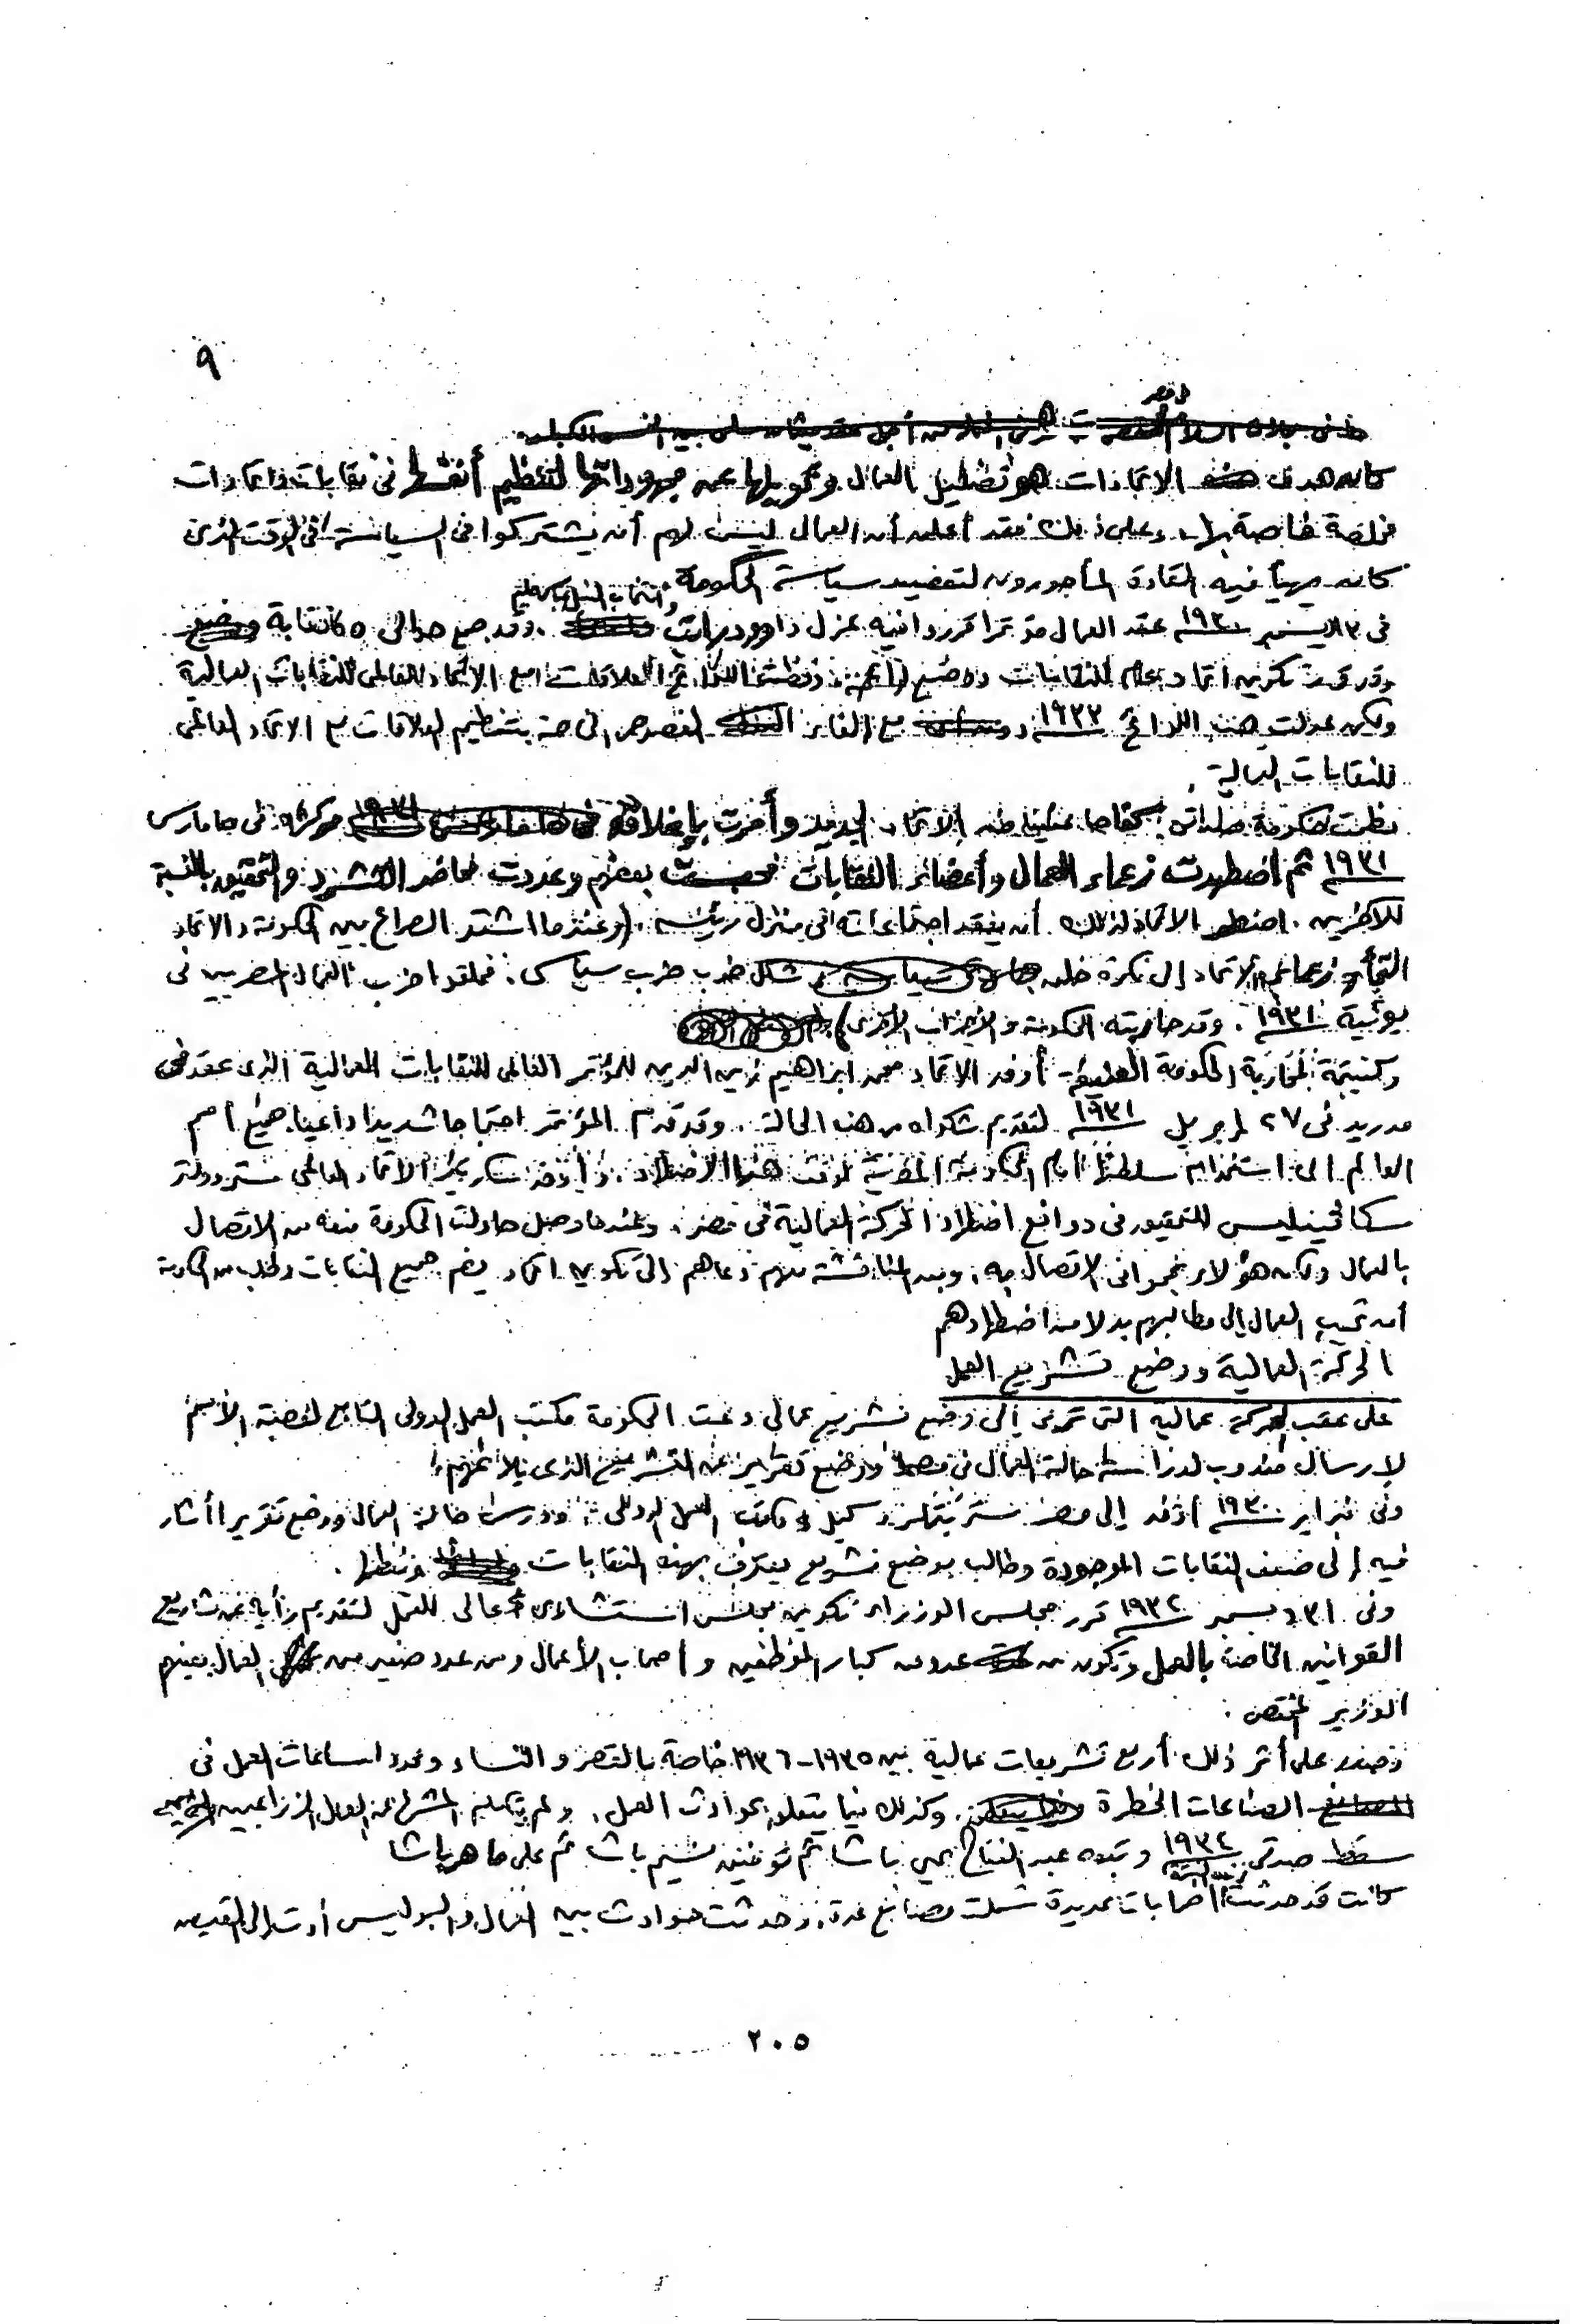 ٩
فى مصر
كان هدف هذه الاتحادات هو تضليل العمال وتحويلها عن مجهوداتها لتنظيم أنفسها فى نقابات واتحادات
مخلصة خاصة بها. وعلى ذلك فقد أعلن أن العمال ليس لهم أن يشتركوا فى السياسة فى الوقت الذى
كان يهيأ فيه القادة المأجورون لتعضيد سياسة الحكومة
فى ديسمبر ١٩٣٠ عقد العمال مؤتمرا قرروا فيه وانتخاب عباس حليم. وقد جمع حوالى نقابة
وقرر تكوين اتحاد عام للنقابات ووضع لائحة ونظمت اللوائح العلاقات مع الاتحاد العالمى للنقابات العمالية
ولكن عدلت هذه اللوائح ١٩٣٣ مع إلغاء النصوص الخاصة بتنظيم العلاقات مع الاتحاد العالمى
للنقابات العمالية.
نظمت حكومة صدقى كفاحا عنيفا ضد الاتحاد الجديد وأمرت بإغلاق مركزه فى مارس
١٩٣١ ثم اضطهدت زعماء العمال وأعضاء النقابات فحبست بعضهم وعددت محاضر التشرد والتحقيق بالنسبة
للآخرين. اضطر الاتحاد لذلك أن يعقد اجتماعاته فى منزل رئيسه. (وعندما اشتد الصراع بين الحكومة والاتحاد
التجأ زعماء الاتحاد إلى فكرة خلق شكل حزب سياسى. فخلقوا حزب العمال المصريين فى
يونية ١٩٣١. وقد حاربته الحكومة والأحزاب الأخرى)
وكنتيجة لمحاربة الحكومة العنيفة أوفد الاتحاد محمد ابراهيم زين الدين للمؤتمر العالمى للنقابات العمالية الذى عقد فى
مدريد فى ٢٧ ابريل ١٩٣١ لتقديم شكواه من هذه الحالة. وقد قدم المؤتمر احتجاجا شديدا داعيا جميع أمم
العالم الى استخدام سلطتها أمام الحكومة المصرية لوقف هذا الاضطهاد. وأوفد سكرتير الاتحاد العالمى مستر وولتر
سكافينيليس للتحقيق فى دوافع اضطهاد الحركة العمالية فى مصر. وعندما وصل حاولت الحكومة منعه من الاتصال
بالعمال ولكن هؤلاء نجحوا فى الاتصال به. وبعد المناقشة معهم دعاهم إلى تكوين اتحاد يضم جميع النقابات وطلب من الحكومة
أن تجيب العمال إلى مطالبهم بدلا من اضطهادهم
الحركة العمالية ووضع تشريع العمل
على عقب حركة عمالية التى تهدف إلى وضع تشريع عمالى دعت الحكومة مكتب العمل الدولى التابع لعصبة الأمم
لإرسال مندوب لدراسة حالة العمال فى مصر ووضع تقرير عن التشريع الذى يلائمهم.
وفى فبراير ١٩٣٢ أوفد إلى مصر مستر بتلر وكيل مكتب العمل الدولى ودرس حالة العمال ووضع تقريرا أشار
فيه إلى ضعف النقابات الموجودة وطالب بوضع تشريع يعترف بهذه النقابات وينظمها.
وفى ٣١ ديسمبر ١٩٣٢ قرر مجلس الوزراء تكوين مجلس استشارى عالى للعمل لتقديم رأيه عن مشاريع
القوانين الخاصة بالعمل وتكون من عدد من كبار الموظفين وأصحاب الأعمال ومن عدد صغير من العمال يعينهم
الوزير المختص.
وصدر على أثر ذلك أربع تشريعات عمالية بين ١٩٣٥-١٩٣٦ خاصة بالقصر والنساء ومحددا ساعات العمل فى
الصناعات الخطرة وكذلك فيما يتعلق بحوادث العمل. ولم يتكلم المشرع عن العمال الزراعيين
سقط صدقى ١٩٣٢ وتبعه عبد الفتاح يحي باشا ثم توفيق نسيم باشا ثم على ماهر باشا
كانت قد حدثت اضرابات عديدة شملت مصانع عدة. وحدثت حوادث بين العمال والبوليس أدت إلى القبض
٢٠٥